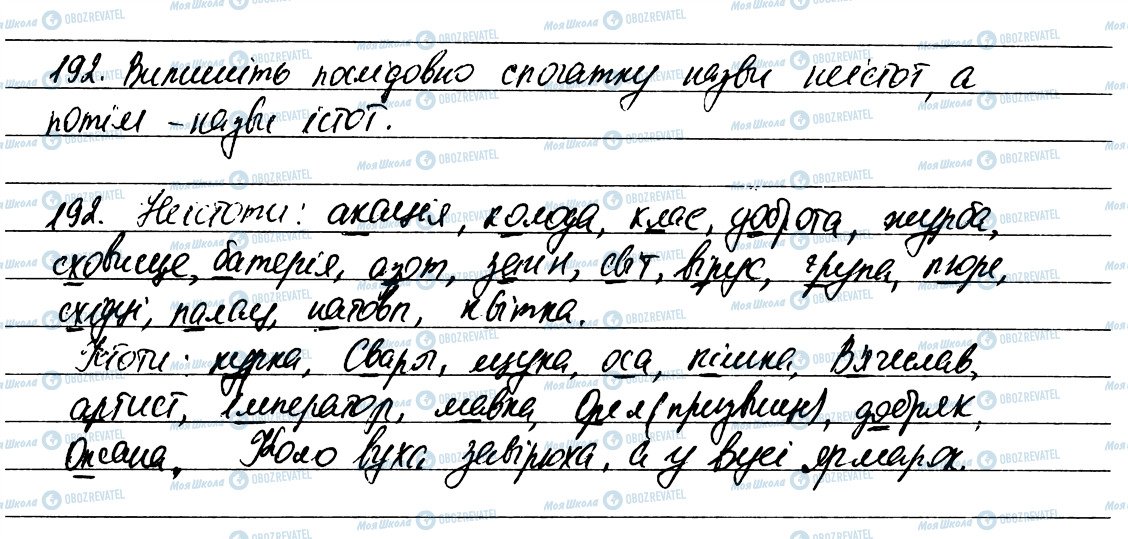 192. Випишіть послідовно спочатку назви неістот, а
потім - назви істот.
192. Неістоти: акація, колода, клас, доброта, журба,
сховище, батерія, азот, загін, світ, вірус, група, пюре,
східці, палац, натовп, квітка.
Істоти: курка, Сварог, щука, оса, пішка, В'ячеслав,
артист, імператор, мавка, Орел (прізвище), добряк,
Оксана. Коло вуха завірюха, а у вусі ярмарок.